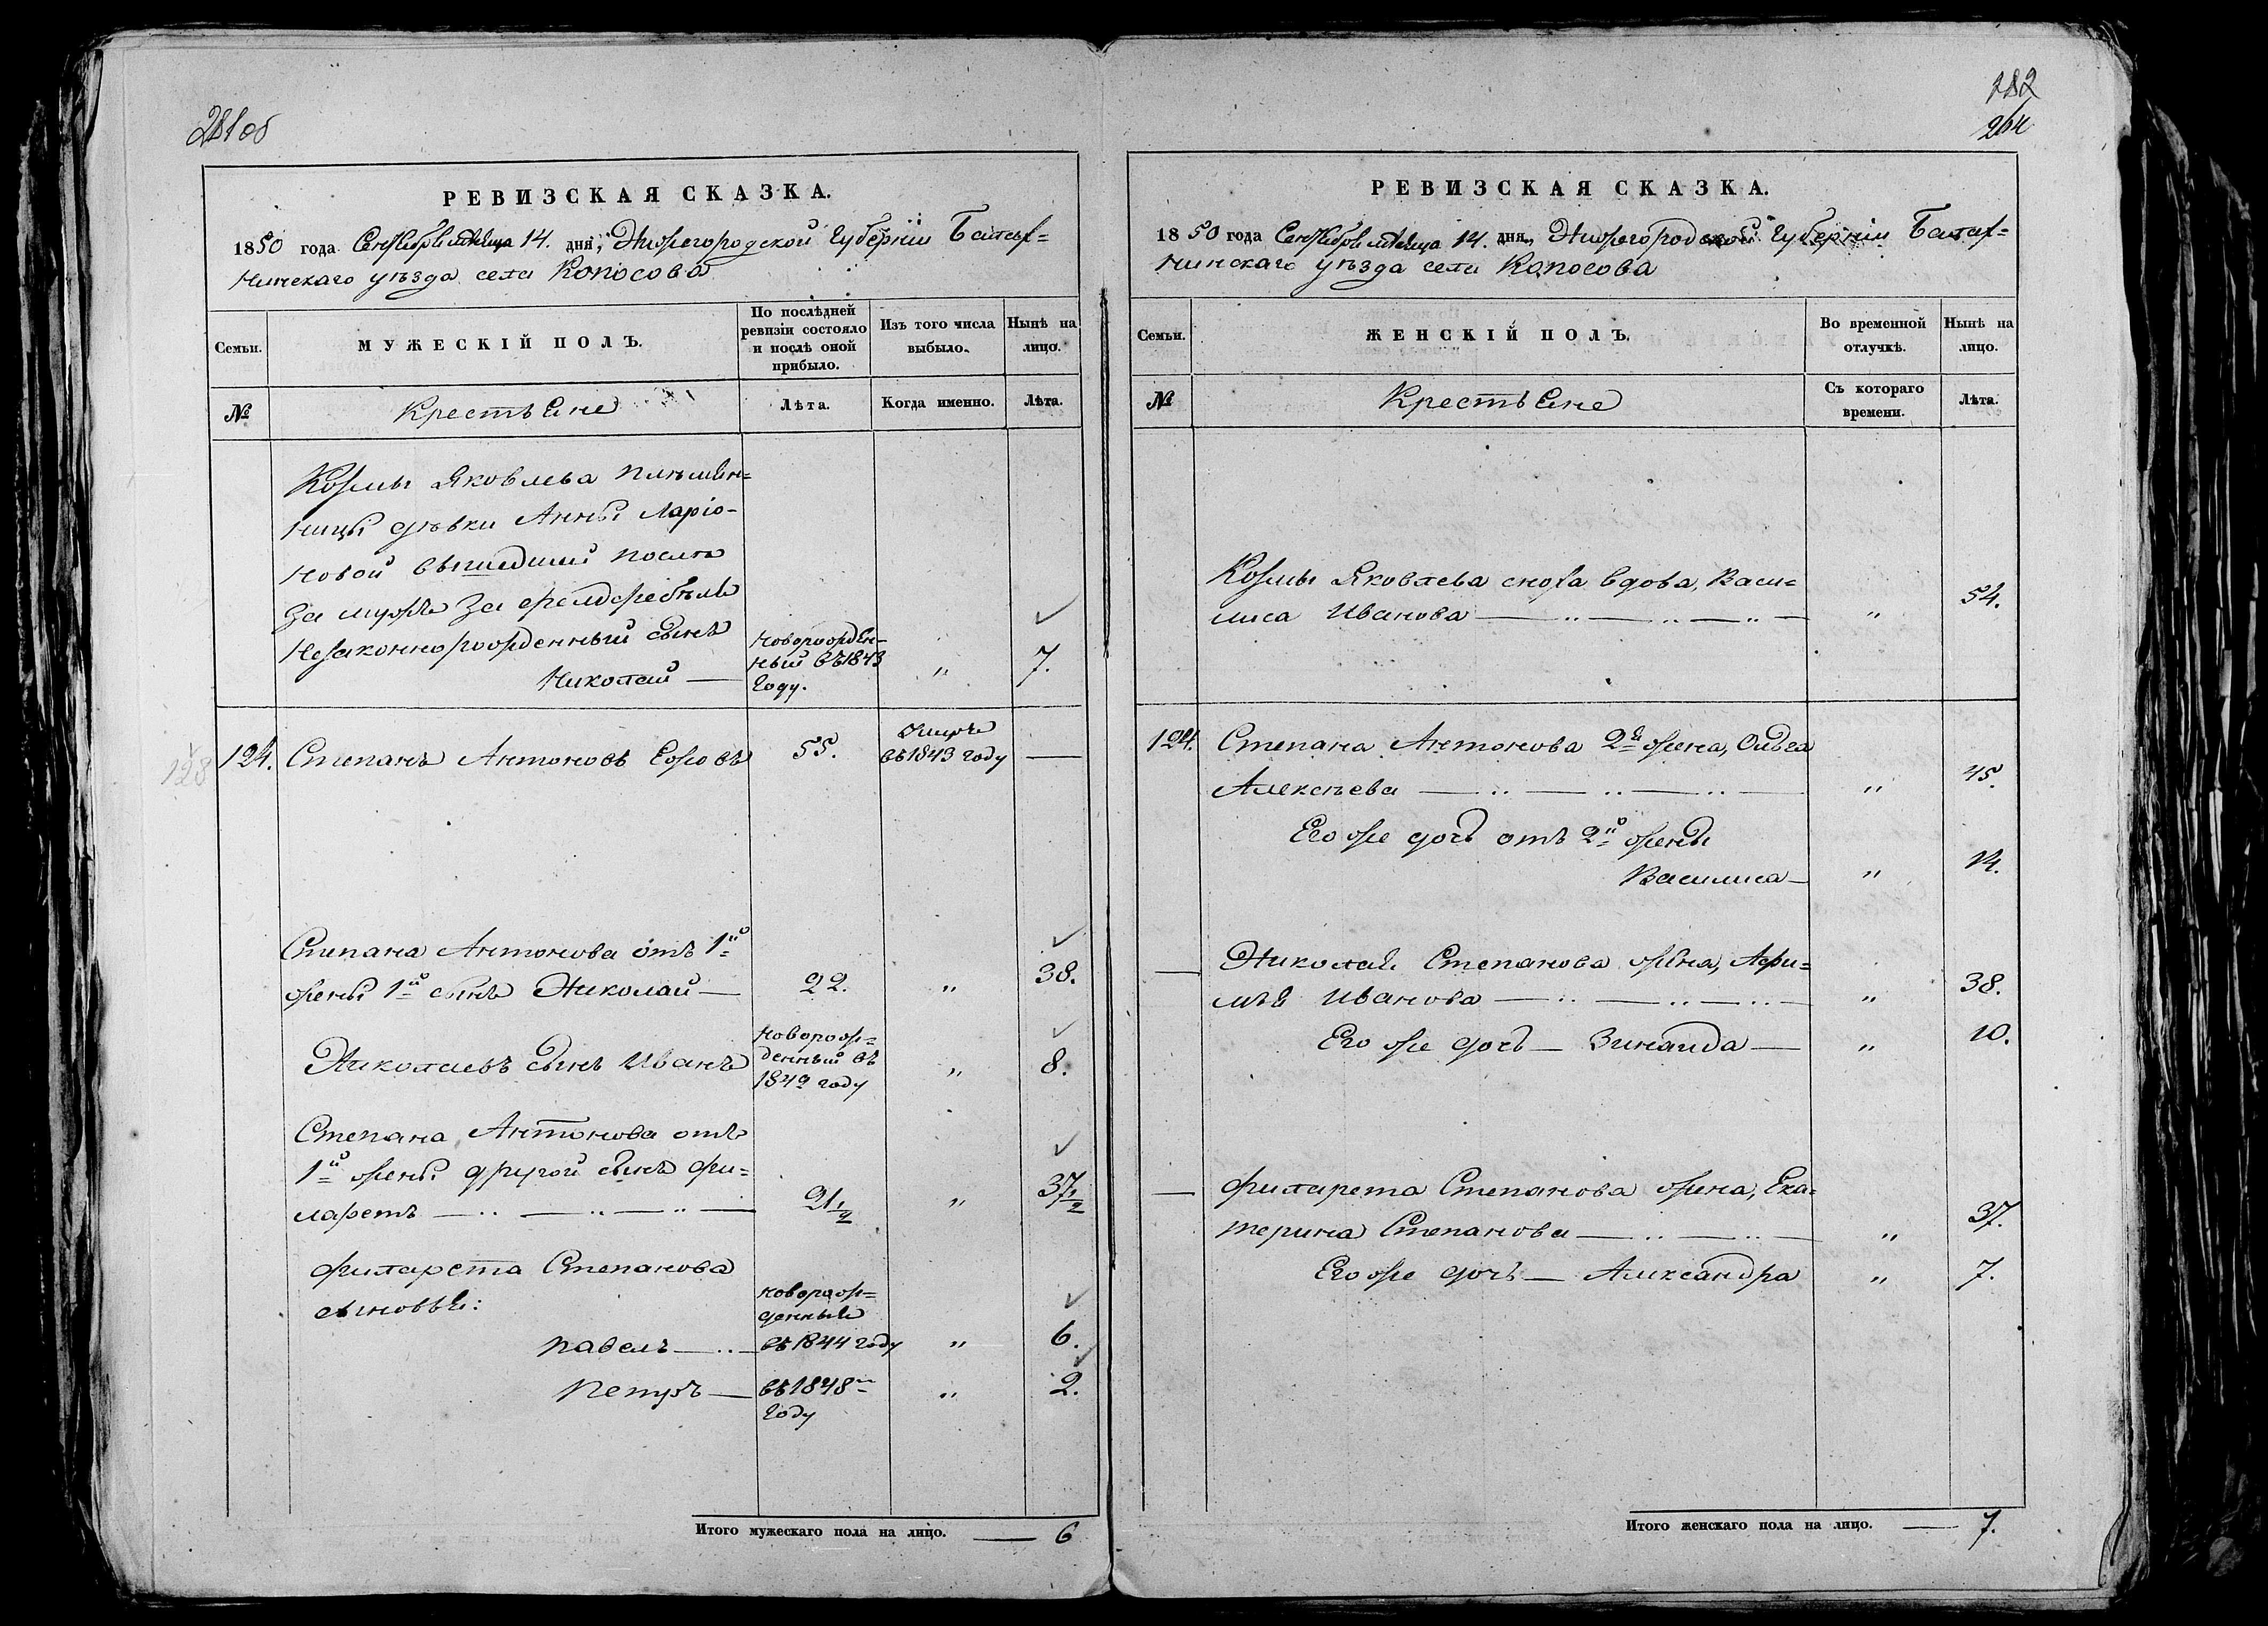 281об
РЕВИЗСКАЯ СКАЗКА.
1850 года Сентября месяца 14. дня, Нижегородской Губерніи Балах=
нинскаго уѣзда села Копосова
Семьи.
МУЖЕСКІЙ ПОЛЪ.
По послѣдней
ревизіи состояло
и послѣ оной
прибыло.
Изъ того числа
выбыло.
Нынѣ на
лицо.
№
Крестьяне
Лѣта.
Когда именно.
Лѣта.
Козмы Яковлева племян=
ницы дѣвки Анны Ларіо-
новой вышедшей после
за мужъ за
незаконнорожденный сынъ
Николай —
новорожден-
ный въ 1843
году.
"
7.
128
124.
Степанъ Антоновъ Ежовъ
55.
Умеръ
въ 1843 году
—
Степана Антонова отъ 1й
жены 1й сынъ Николай —
22.
"
38.
Николаевъ сынъ Иванъ
новорож=
денный въ
1842 году
"
8.
Степана Антонова отъ
1й жены другой сынъ Фи=
ларетъ — .. — .. — .. —
21½
"
37½
Филарета Степанова
сыновья:
Павелъ — .. —
новорож=
денные
въ 1844 году
"
6.
Петръ —
въ 1848м
году
"
2.
Итого мужескаго пола на лицо. — 6
182
264
РЕВИЗСКАЯ СКАЗКА.
1850 года Сентября месяца 14. дня, Нижегородской Губерніи Балах=
нинскаго уѣзда села Копосова
Семьи.
ЖЕНСКІЙ ПОЛЪ.
Во временной
отлучкѣ.
Нынѣ на
лицо.
№
Крестьяне
Съ котораго
времени.
Лѣта.
Козмы Яковлева сноха вдова, Васи=
лиса Иванова — .. — .. — .. —
"
54.
124.
Степана Антонова 2я жена, Ольга
Алексѣева — .. — .. — .. —
"
45.
Его же дочь отъ 2й жены
Василиса —
"
14.
— Николая Степанова жена, Афи=
мья Иванова — .. — .. — .. —
"
38.
Его же дочь — Зинаида —
"
10.
— Филарета Степанова жена, Ека=
терина Степанова — .. — .. —
"
37.
Его же дочь — Александра
"
7.
Итого женскаго пола на лицо. — 7.